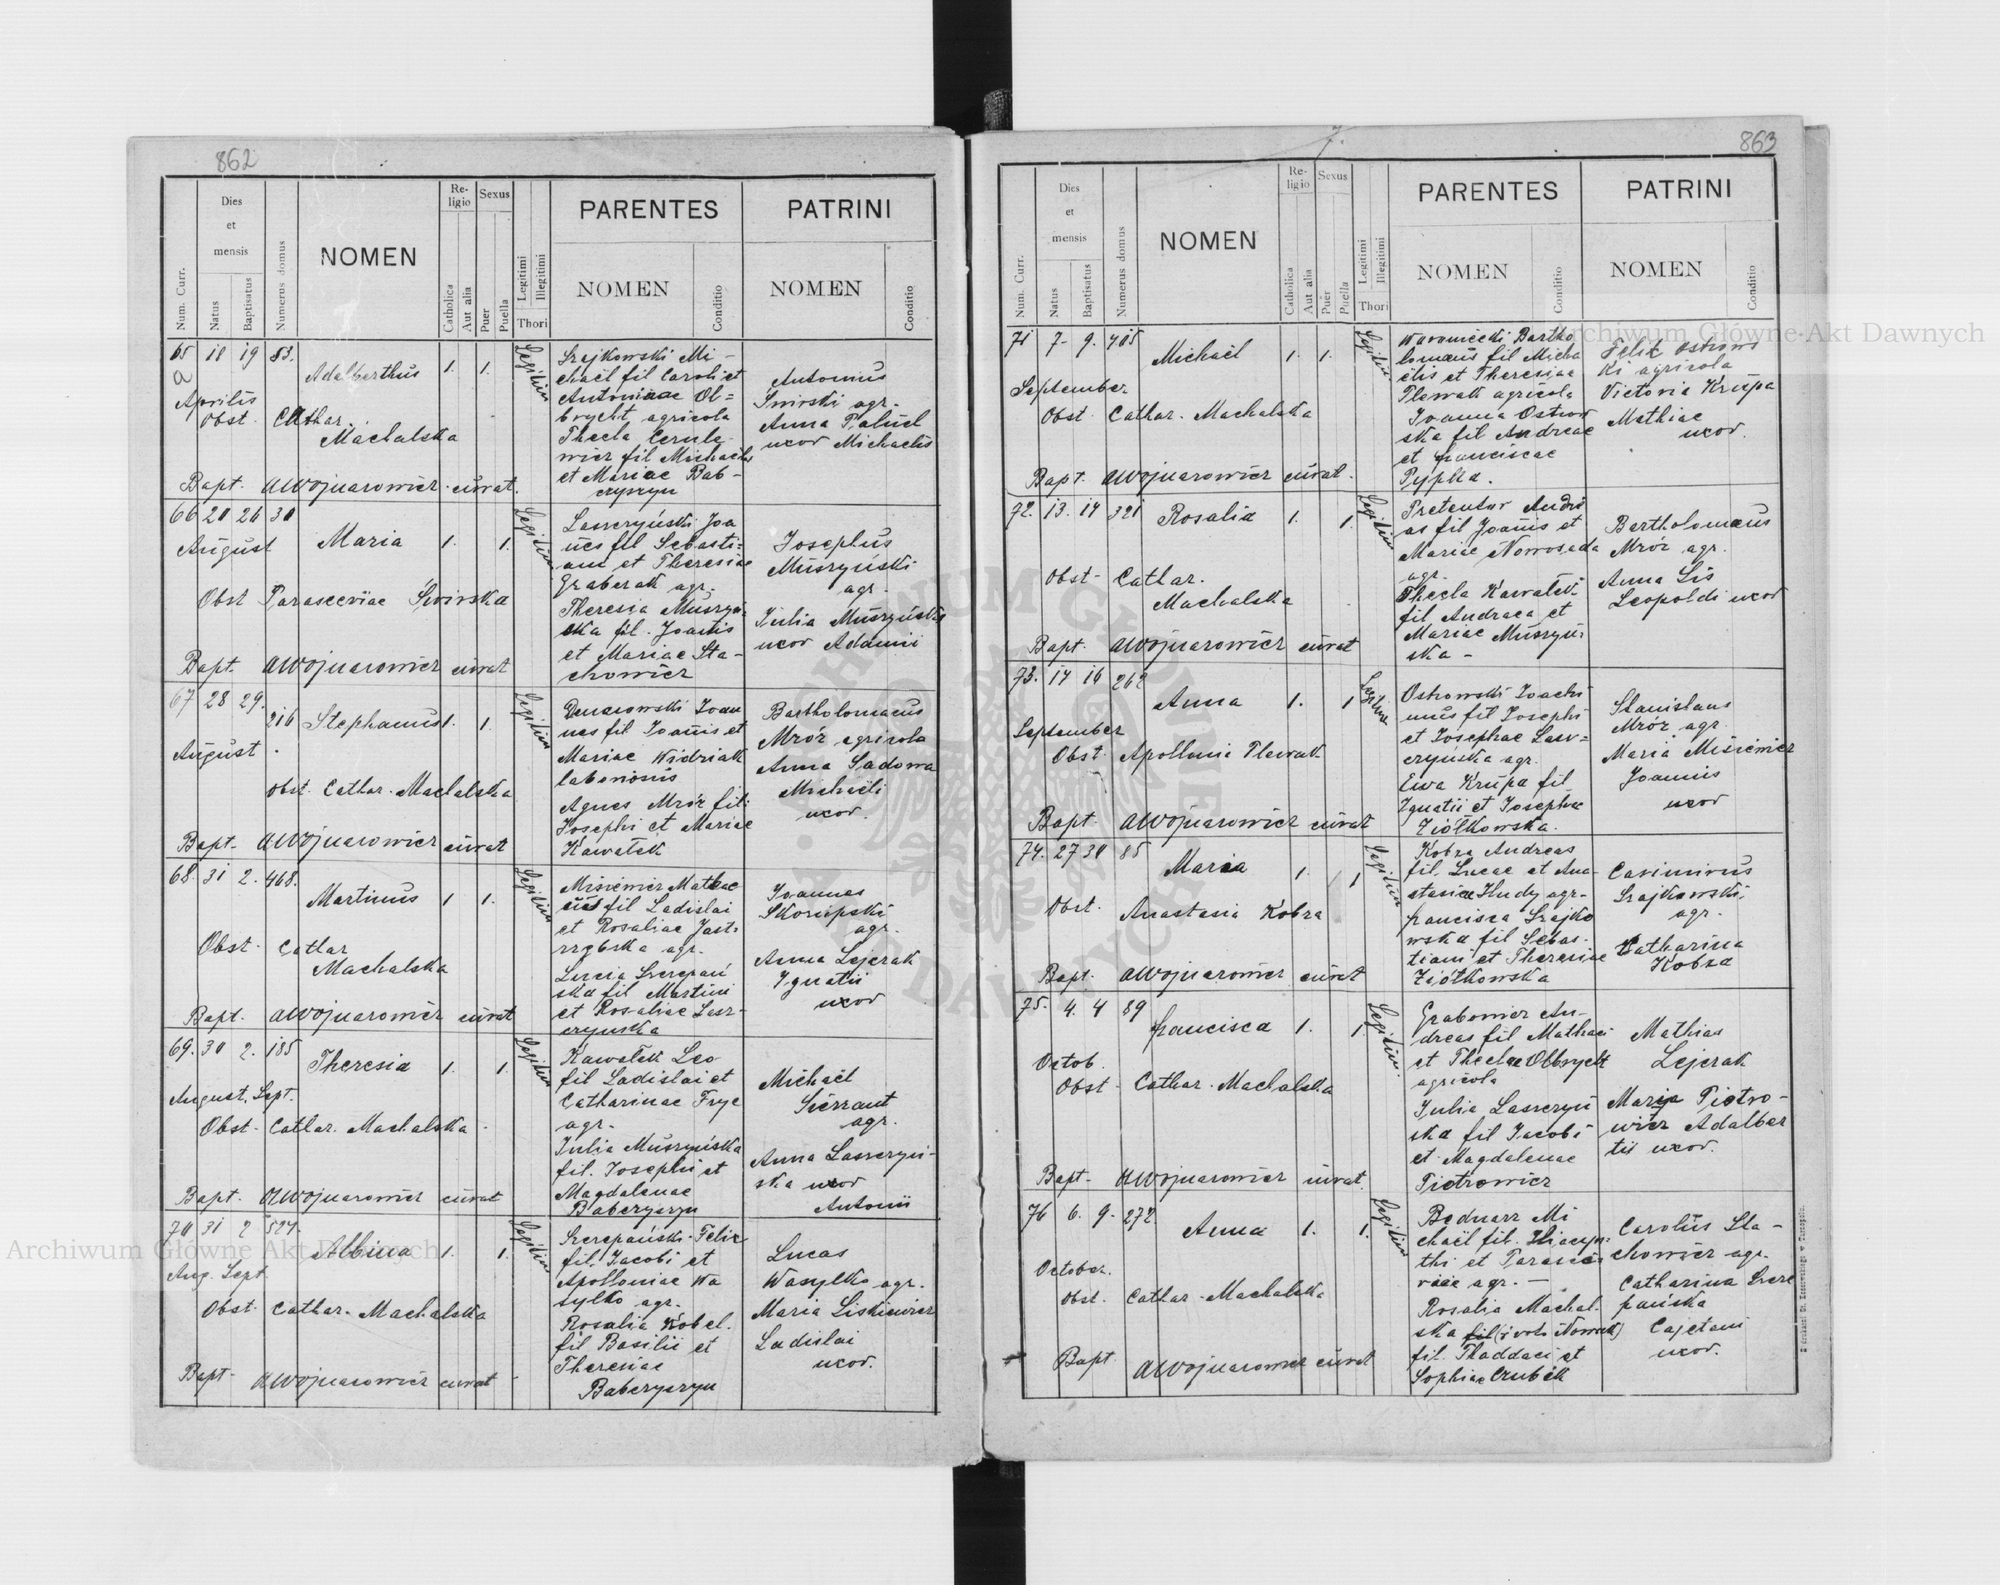 862
Num. Curr.
Dies
et
mensis
Natus
Baptisatus
Numerus domus
NOMEN
Re-
ligio
Catholica
Aut alia
Sexus
Puer
Puella
Legitimi
Illegitimi
Thori
PARENTES
NOMEN
Conditio
PATRINI
NOMEN
Conditio
65 18 19 83.
a
Aprilis
Adalberthus 1. 1.
Obst. Cathar.
Machalska
Bapt. AWojnarowicz curat.
Szajkowski Mi-
chaël fil Caroli et
Antoninae Ol=
brycht agricola
Thecla Cerule
wicz fil Michaelis
et Mariae Bab-
czyszyn
Antonius
Świrski agr.
Anna Paluch
uxor Michaelis
66 20 26 30
August Maria 1. 1.
Obst Parasceviae Świrska
Bapt. AWojnarowicz curat
Laszczyński Joa
nes fil Sebasti=
ani et Theresiae
Graberak agr.
Theresia Muszyń
ska fil. Joanis
et Mariae Sta-
chowicz
Josephus
Muszyński
agr.
Julia Muszyńska
uxor Adamii
67 28 29.
216 Stephanus 1. 1.
August
Obst. Cathar. Machalska
Bapt. AWojnarowicz curat
nes fil Joanis et
Mariae Widziak
laboriosus
Agnes Mróz fil:
Josephi et Mariae
Kawałek
Bartholomaeus
Mróz agricola
Anna Sadowa
Michaëli
uxor.
68. 31 2. 468.
Martinus 1 1.
Obst. Cathar
Machalska
Bapt. AWojnarowicz curat
Misiewicz Mathae
us fil Ladislai
et Rosaliae Jast-
rzębska agr.
Lucia Szczepań
ska fil Martini
et Rosaliae Lasz-
czyńska
Joannes
Skorupski
agr.
Anna Lejczak
Ignatii
uxor
69. 30 2. 185
Theresia 1. 1.
August. Sept.
Obst. Cathar. Machalska
Bapt. AWojnarowicz curat
Kawałek Leo
fil Ladislai et
Catharinae Fryc
agr.
Julia Muszyńska
fil. Josephi et
Magdalenae
Babczyszyn
Michaël
Sierzant
agr.
Anna Laszczyń-
ska uxor
Antonii
70 31 2 527.
Albina 1. 1.
Aug. Sept.
Obst. Cathar. Machalska
Bapt. AWojnarowicz curat
Szczepański Felix
fil. Jacobi et
Apolloniae Wa
sylko agr.
Rosalia Kobel.
fil Basilii et
Theresiae
Babczyszyn
Lucas
Wasylko agr.
Maria Liskiewicz
Ladislai
uxor.
7.
863
Num. Curr.
Dies
et
mensis
Natus
Baptisatus
Numerus domus
NOMEN
Re-
ligio
Catholica
Aut alia
Sexus
Puer
Puella
Legitimi
Illegitimi
Thori
PARENTES
NOMEN
Conditio
PATRINI
NOMEN
Conditio
71 7. 9. 405
Michaël 1. 1.
September
Obst. Cathar. Machalska
Bapt. AWojnarowicz curat.
Woroniecki Bartho
lomaeus fil Micha
elis et Theresiae
Plewak agricola
Joanna Ostrow
ska fil Andreae
et franciscae
Pypka.
Felix Ostrows
ki agricola
Victoria Krupa
Mathiae
uxor.
72. 13. 14 321 Rosalia 1. 1.
Obst. Cathar.
Machalska
Bapt. AWojnarowicz curat
Pretensor Andre
as fil Joanis et
Mariae Nowosada
agr.
Thecla Kawałek
fil Andreae et
Mariae Muszyń-
ska -
Bartholomaeus
Mróz agr.
Anna Lis
Leopoldi uxor
73. 14 16 262
Anna 1. 1
September
Obst. Apollonia Plewak
Bapt. AWojnarowicz curat
Ostrowski Joachi
mus fil Josephi
et Josephae Lasz=
czyńska agr.
Ewa Krupa fil
Ignatii et Josephae
Ziółkowska.
Stanislaus
Mróz agr.
Maria Misiewicz
Joannis
uxor
74. 27 30 85
Maria 1. 1
Obst. Anastasia Kobza
Bapt. AWojnarowicz curat
Kobza Andreas
fil. Lucae et Ana-
stasiae Hudy agr.
francisca Szajko
wska fil Sebas-
tiani et Theresiae
Ziółkowska
Casimirus
Szajkowski
agr.
Catharina
Kobza
75. 4. 4 89
francisca 1. 1
Octob.
Obst. Cathar. Machalska
Bapt. AWojnarowicz curat.
Grabowicz An-
dreas fil Mathaei
et Theclae Olbrycht
agricola
Julia Laszczyń
ska fil Jacobi
et Magdalenae
Piotrowicz
Mathias
Lejczak
Maria Piotro-
wicz Adalber
tii uxor.
76 6. 9. 272
Anna 1. 1.
October.
Obst. Cathar. Machalska
Bapt AWojnarowicz curat
Bednarz Mi
chaël fil. Hiacyn-
thi et Parasce
viae agr. -
Rosalia Machal-
ska fil (i voto Nowak)
fil. Thaddaei et
Sophiae Czubak
Carolus Sta-
chowicz agr.
Catharina Szcze
pańska
Cajetani
uxor.
Archiwum Główne Akt Dawnych
Archiwum Główne Akt Dawnych
ARCHIWUM GŁÓWNE AKT DAWNYCH